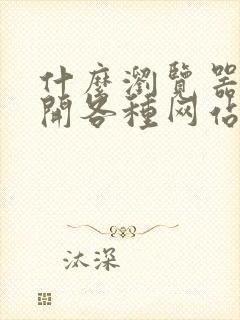 什麼瀏覽器
開各種网站
汰深